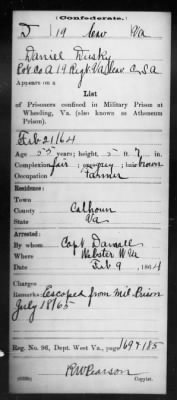 (Confederate.)
D 19 Cav Va
Daniel Dusky
Co A 19 Regt Va Cav C.S.A
Appears on a
List
of Prisoners confined in Military Prison at
Wheeling, Va. (also known as Atheneum
Prison).
Feb 21/64
Age 55 years; height, 5 ft. 7 in.
Complexion fair; eyes grey; hair brown
Occupation Farmer
Residence:
Town
County Calhoun
State Va
Arrested:
By whom Capt Darnall
Where Webster W Va
Date Feb 9, 1864
Charges
Remarks: Escaped from Mil Prison
July 18/65
Reg. No. 96, Dept. West Va., page 169 & 185
R W Pearson
Copyist.